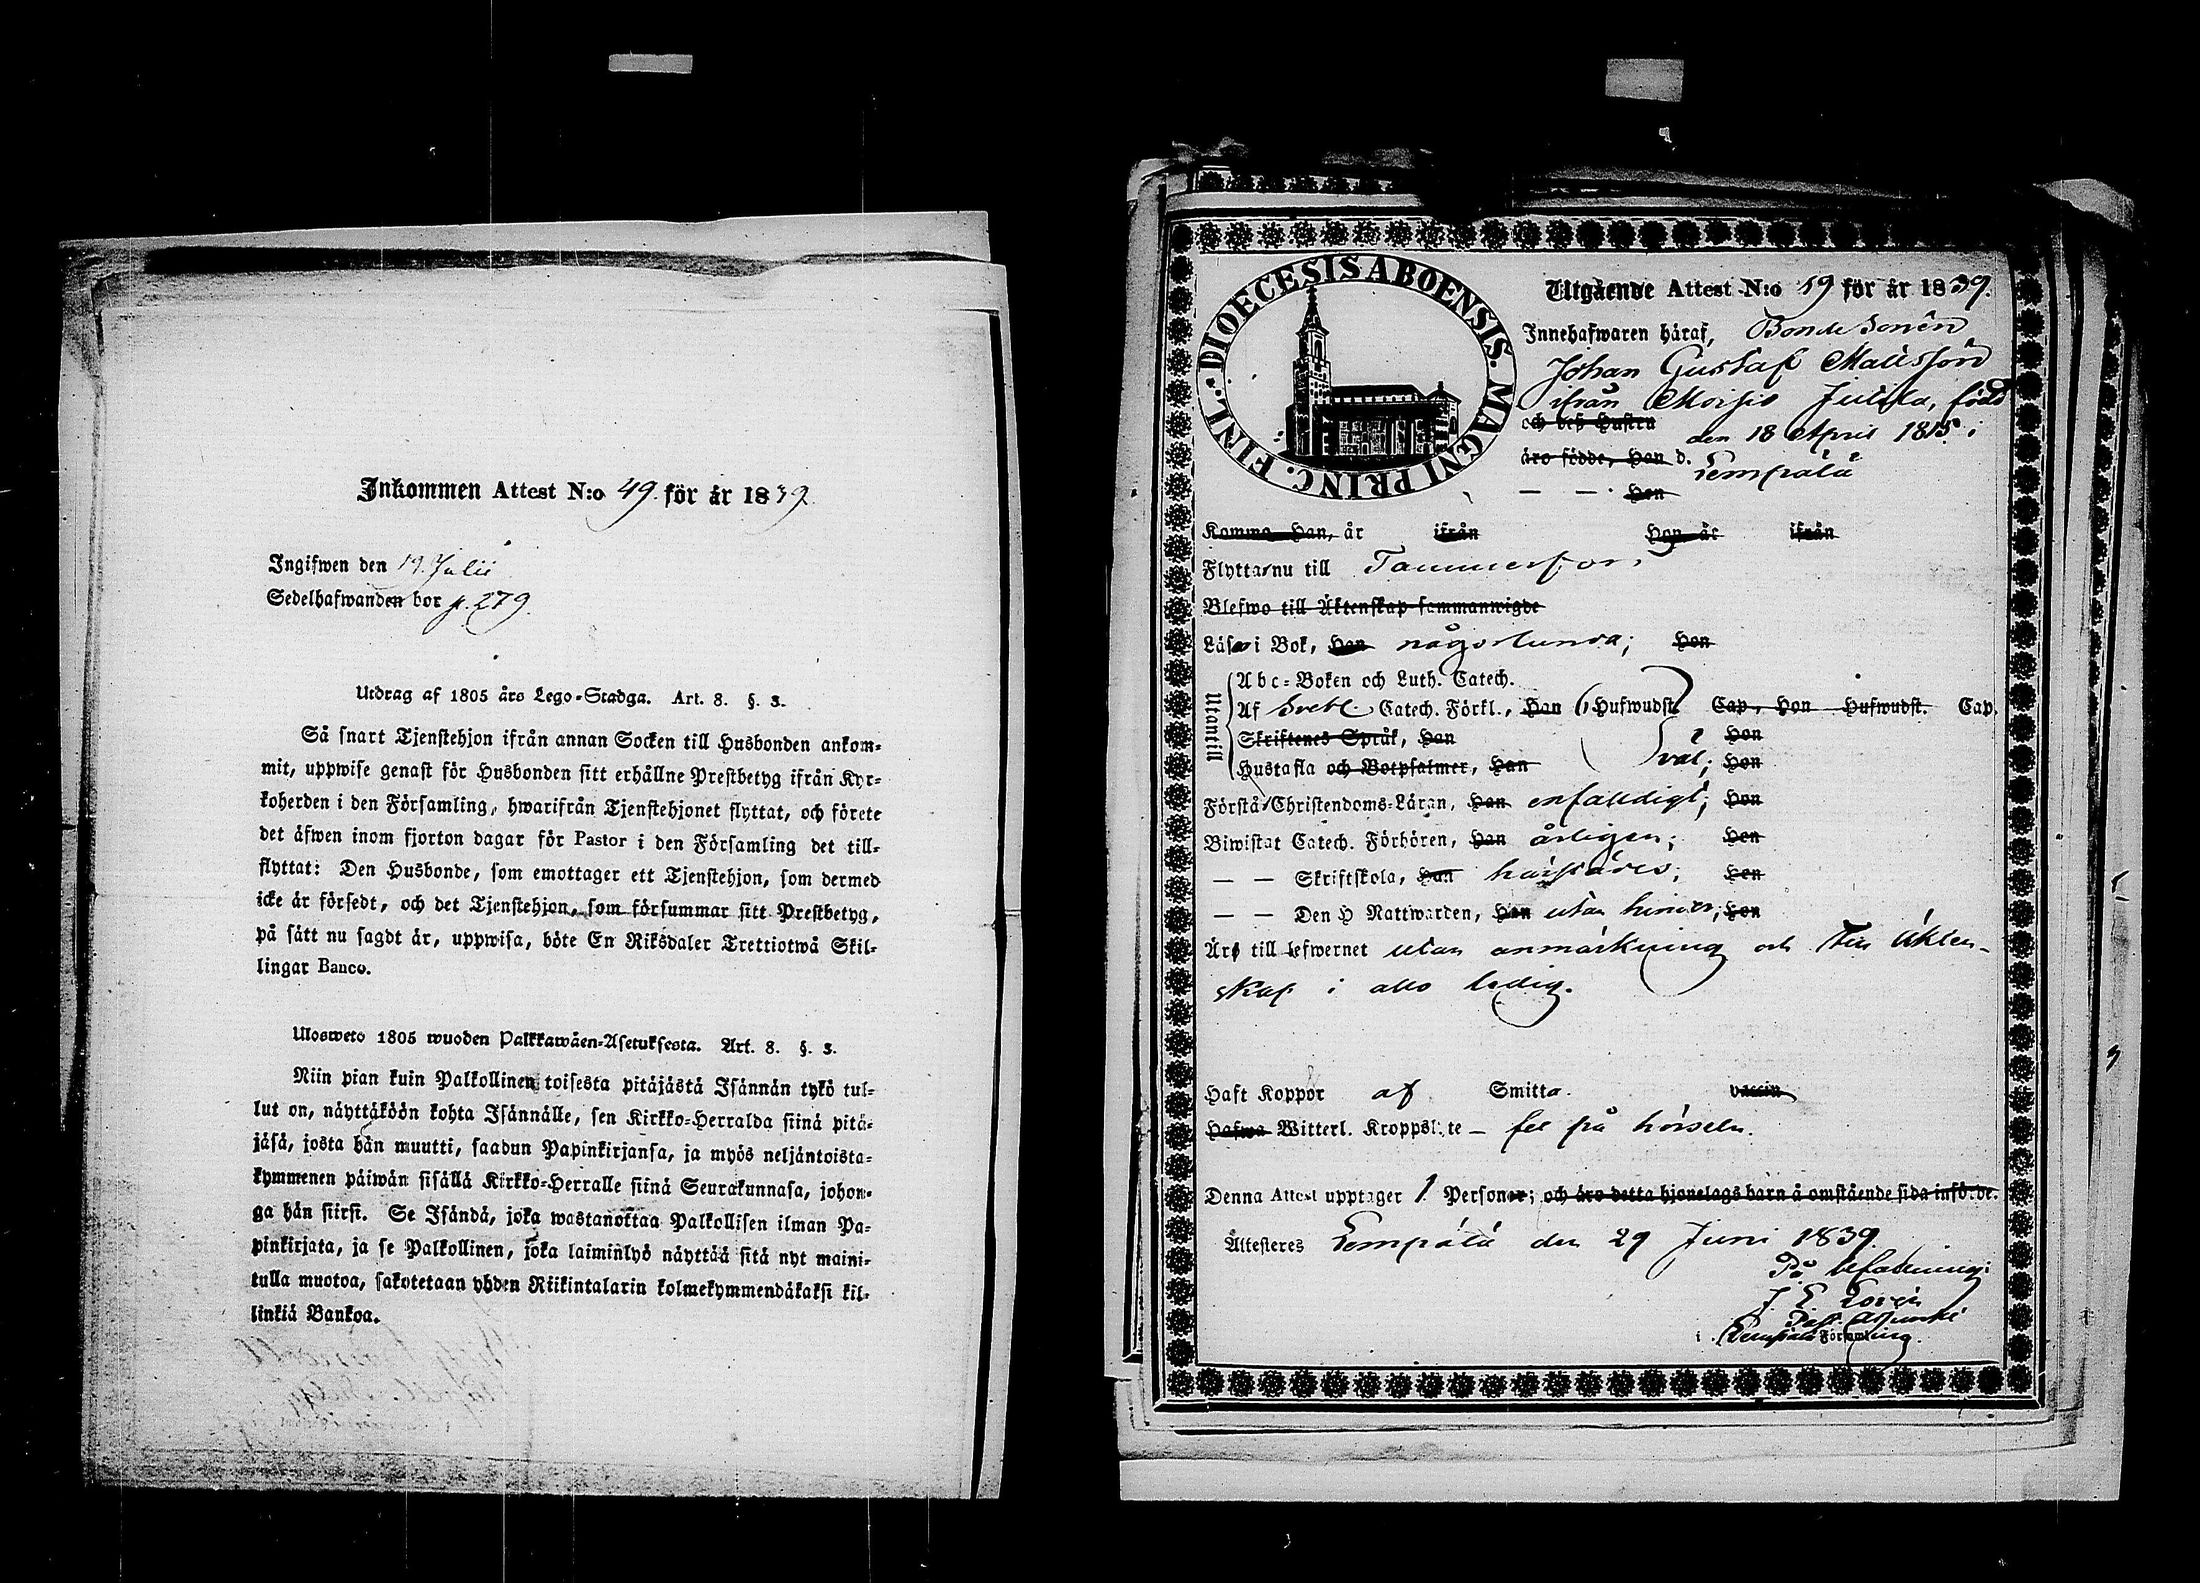 Inkommen Attest N:o 49. för år 1839.
Ingifwen den 19. Julii
Sedelhafwanden bor p. 279.
Utdrag af 1805 års Lego-Stadga. Art. 8. §. 3.
Så snart Tjenstehjon ifrån annan Socken till Husbonden ankom-
mit, uppwise genast för Husbonden sitt erhållne Prestbetyg ifrån Kyr-
koherden i den Församling, hwarifrån Tjenstehjonet flyttat, och förete
det äfwen inom fjorton dagar för Pastor i den Församling det till-
flyttat: Den Husbonde, som emottager ett Tjenstehjon, som dermed
icke är försedt, och det Tjenstehjon, som försummar sitt Prestbetyg,
på sätt nu sagdt är, uppwisa, böte En Riksdaler Trettiotwå Skil-
lingar Banco.
Ulosweto 1805 wuoden Palkkawäen-Asetuksesta. Art. 8. §. 3.
Niin pian kuin Palkollinen toisesta pitäjästä Isännän tykö tul-
lut on, näyttäköön kohta Isännälle, sen Kirkko-Herralda siinä pitä-
jäsä, josta hän muutti, saadun Papinkirjansa, ja myös neljäntoista-
kymmenen päiwän sisällä Kirkko-Herralle siinä Seurakunnasa, johon-
ga hän siirsi. Se Isändä, joka wastanottaa Palkollisen ilman Pa-
pinkirjata, ja se Palkollinen, joka laiminlyö näyttää sitä nyt maini-
tulla muotoa, sakotetaan yhden Riikintalarin kolmekymmendäkaksi kil-
linkiä Bankoa.
DIOECESIS ABOENSIS. MAGNI PRINC. FINL.
Utgående Attest N:o 59 för år 1839.
Innehafwaren häraf, Bondesonen
Johan Gustaf Mattsson
ifrån Moisio Julkla, född
och dess Hustru den 18 April 1815 i
äro födde, Han d. Lempälä
— — Hon
Komma Han, år ifrån Hon år ifrån
Flytta nu till Tammerfors
Blefwo till Äktenskap sammanwigde
Läsa i Bok, Han någorlunda; Hon
Utantill
Abc-Boken och Luth. Catech.
Af Sveb. Catech. Förkl., Han Hufwudst. Cap., Hon Hufwudst. Cap.
Skriftenes Språk, Han Hon
Hustafla och Botpsalmer, Han väl; Hon
Förstå Christendoms-Läran, Han enfaldigt; Hon
Biwistat Catech. Förhören, Han årligen; Hon
— — Skriftskola, Han härstädes; Hon
— — Den H Nattwarden, Han utan hinder; Hon
Äro till lefwernet utan anmärkning och till Äkten-
skap i allo ledig.
Haft Koppor af Smitta. vaccin
Hafwa Witterl. Kroppslyte — fel på hörseln.
Denna Attest upptager 1 Personer; och äro detta hjonelags barn å omstående sida införde.
Altesteres Lempälä den 29 Juni 1839.
På befallning:
J. E.
Past. Adjunkt
i Lempälä Församling.